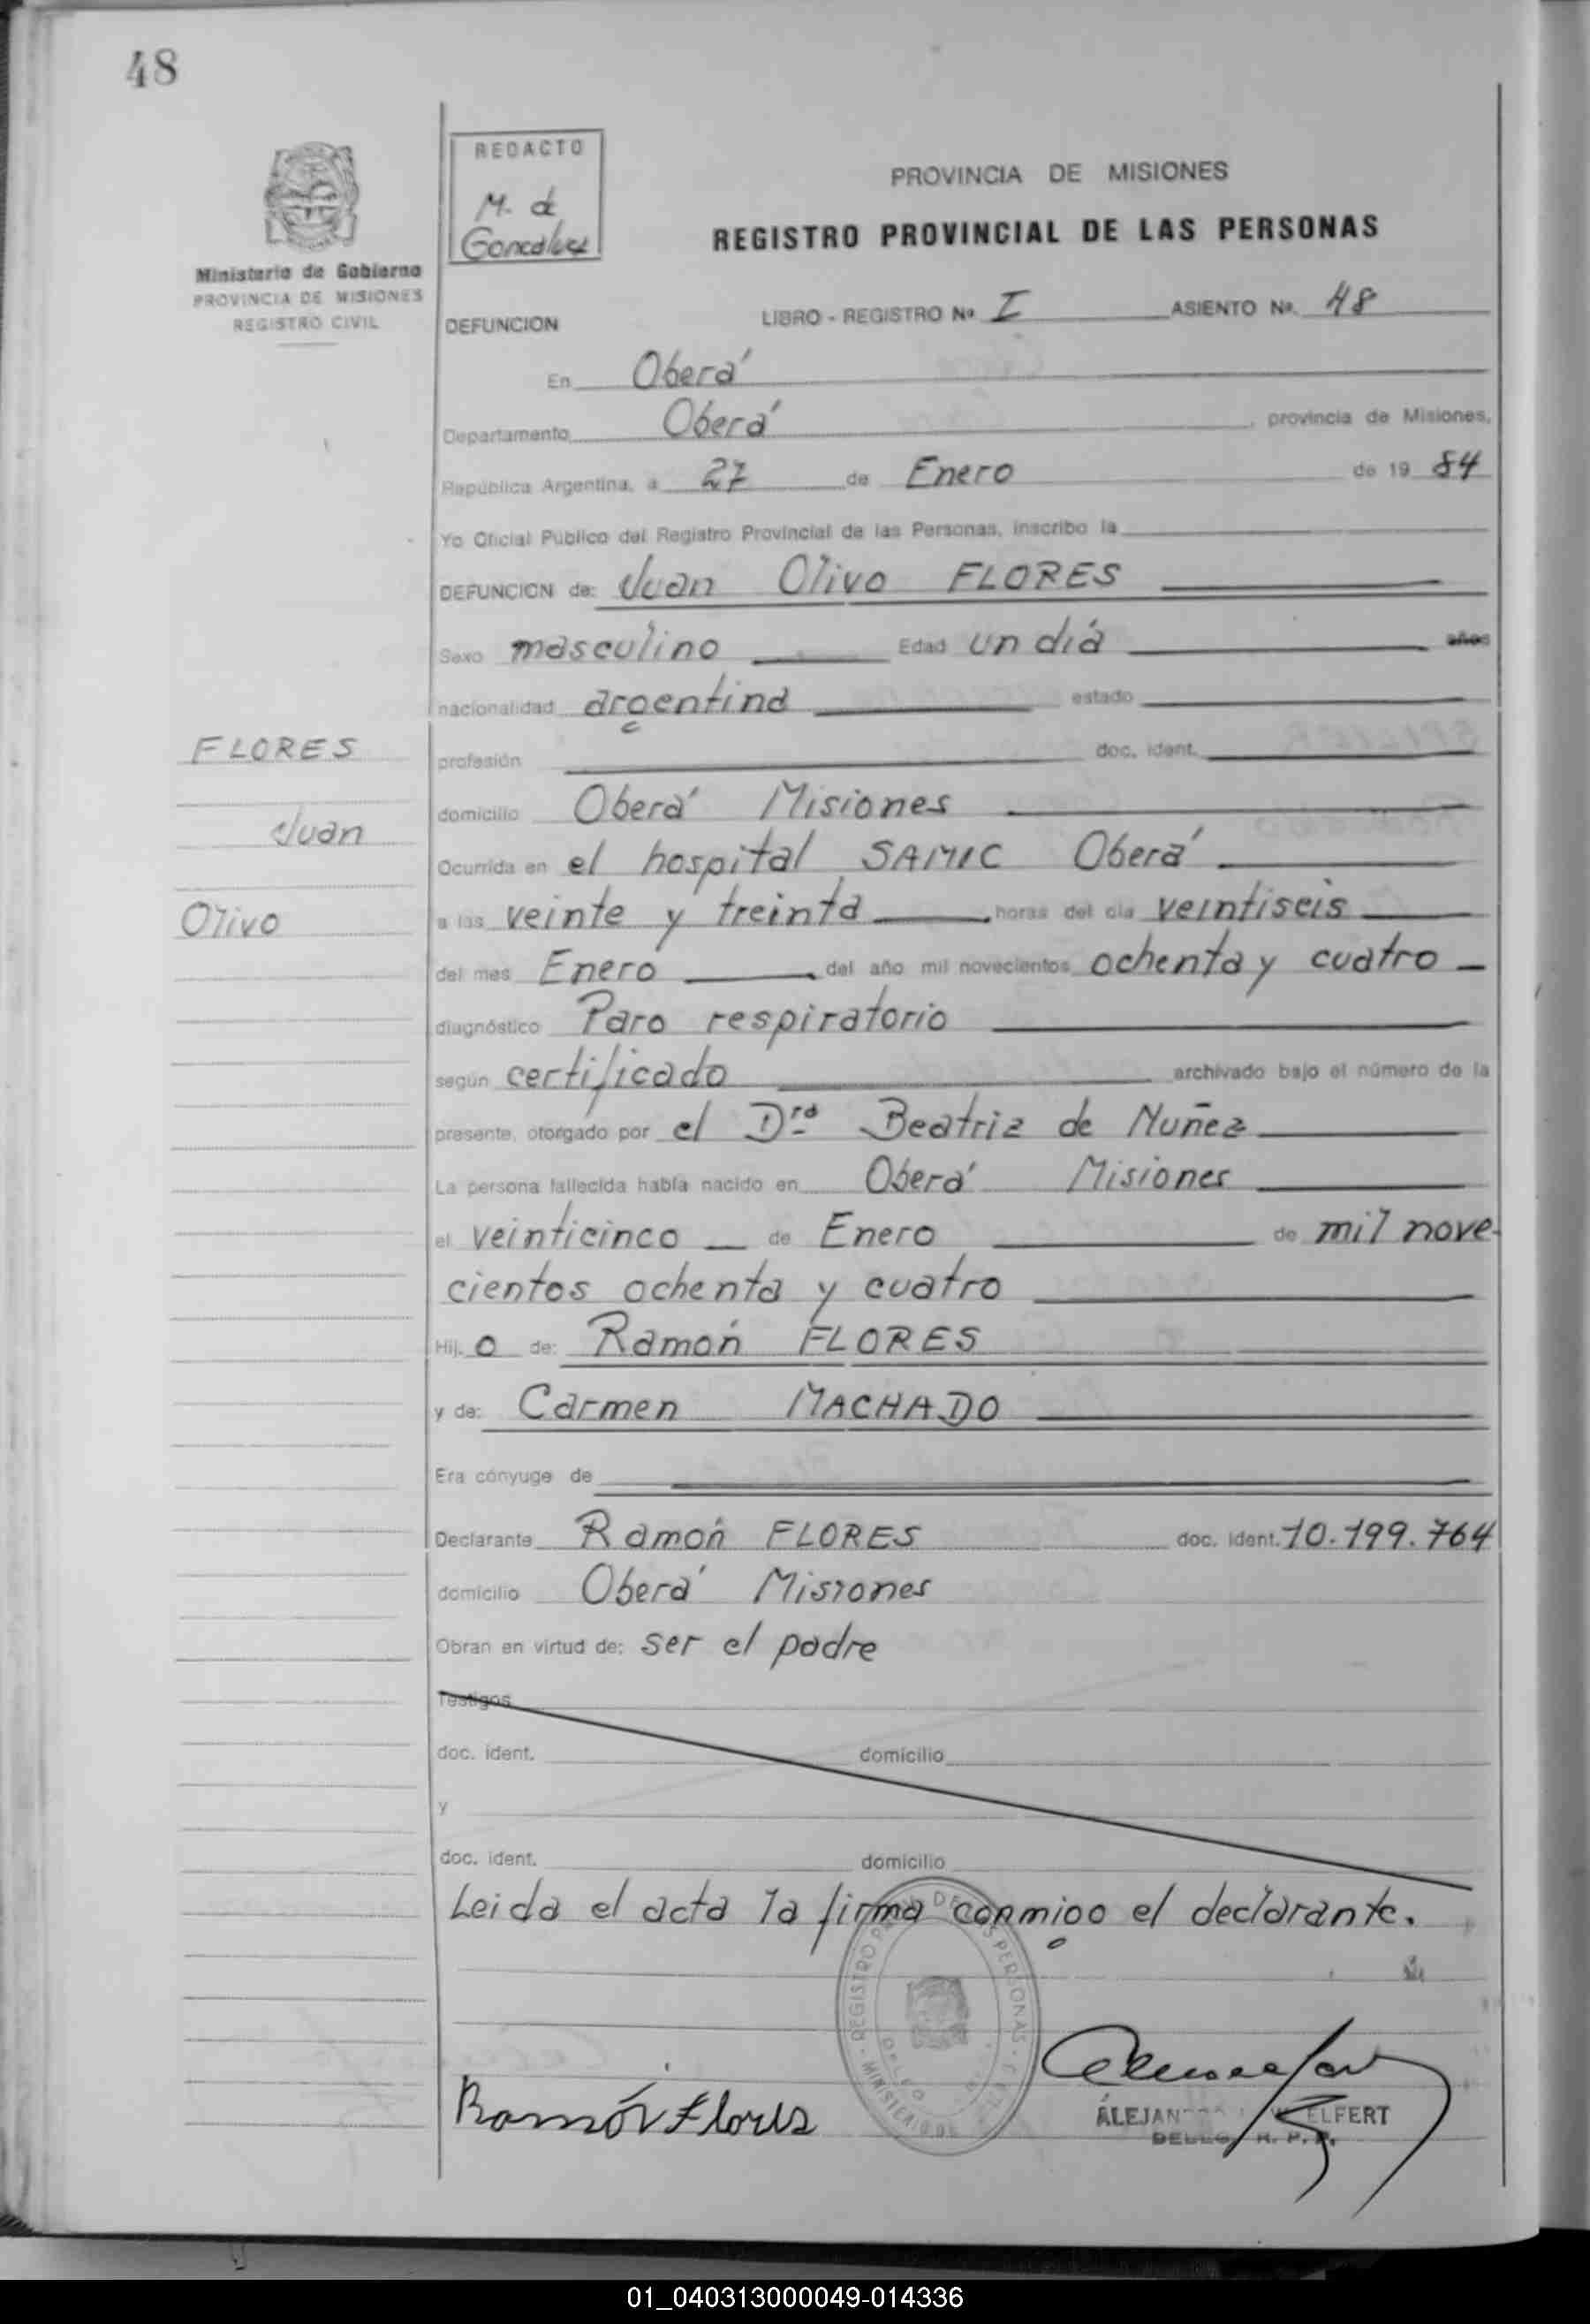 48
REDACTO
M. de
Goncalvez
Ministerio de Gobierno
PROVINCIA DE MISIONES
REGISTRO CIVIL
PROVINCIA DE MISIONES
REGISTRO PROVINCIAL DE LAS PERSONAS
DEFUNCION LIBRO - REGISTRO Nº I ASIENTO Nº 48
En Oberá
Departamento Oberá, provincia de Misiones,
República Argentina, a 27 de Enero de 19 84
Yo Oficial Público del Registro Provincial de las Personas, inscribo la
DEFUNCION de: Juan Olivo FLORES
Sexo masculino Edad un día años
nacionalidad argentina estado
profesión doc. ident.
domicilio Oberá Misiones
Ocurrida en el hospital SAMIC Oberá
a las veinte y treinta horas del día veintiseis
del mes Enero del año mil novecientos ochenta y cuatro
diagnóstico Paro respiratorio
según certificado archivado bajo el número de la
presente, otorgado por el Dra Beatriz de Nuñez
La persona fallecida había nacido en Oberá Misiones
el veinticinco de Enero de mil nove-
cientos ochenta y cuatro
Hij o de: Ramón FLORES
y de: Carmen MACHADO
Era cónyuge de
Declarante Ramón FLORES doc. ident. 10.199.764
domicilio Oberá Misiones
Obran en virtud de: ser el padre
Testigos
doc. ident. domicilio
y
doc. ident. domicilio
Leida el acta la firma conmigo el declarante.
FLORES
Juan
Olivo
Ramón Flores
ELFERT
01_040313000049-014336